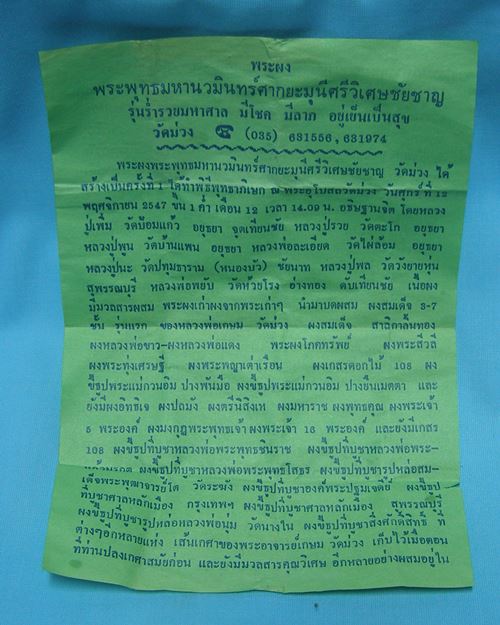 พระผง
พระพุทธมหานวมินทร์ศากยะมุนีศรีวิเศษชัยชาญ
รุ่นร่ำรวยมหาศาล มีโชค มีลาภ อยู่เย็นเป็นสุข
วัดม่วง ☎ (035) 631556, 631974
พระผงพระพุทธมหานวมินทร์ศากยะมุนีศรีวิเศษชัยชาญ วัดม่วง ได้
สร้างเป็นครั้งที่ 1 ได้ทำพิธีพุทธาภิเษก ณ พระอุโบสถวัดม่วง วันศุกร์ ที่ 12
พฤศจิกายน 2547 ขึ้น 1 ค่ำ เดือน 12 เวลา 14.09 น. อธิษฐานจิต โดยหลวง
ปู่เพิ่ม วัดป้อมแก้ว อยุธยา จุดเทียนชัย หลวงปู่รวย วัดตะโก อยุธยา
หลวงปู่พูน วัดบ้านแพน อยุธยา หลวงพ่อละเอียด วัดไผ่ล้อม อยุธยา
หลวงปู่นะ วัดปทุมธาราม (หนองบัว) ชัยนาท หลวงปู่พล วัดวังยายหุ่น
สุพรรณบุรี หลวงพ่อพยับ วัดห้วยโรง อ่างทอง ดับเทียนชัย เนื้อผง
มีมวลสารผสม พระผงเก่าผงจากพระเก่าๆ นำมาบดผสม ผงสมเด็จ 3-7
ชั้น รุ่นแรก ของหลวงพ่อเกษม วัดม่วง ผงสมเด็จ สาลิกาลิ้นทอง
ผงหลวงพ่อขาว-ผงหลวงพ่อแดง พระผงโภคทรัพย์ ผงพระสีวลี
ผงพระทุ่งเศรษฐี ผงพระพญาเต่าเรือน ผงเกสรดอกไม้ 108 ผง
ขี้ธูปพระแม่กวนอิม ปางพันมือ ผงขี้ธูปพระแม่กวนอิม ปางยืนเมตตา และ
ยังมีผงอิทธิเจ ผงปถมัง ผงตรีนิสิงเห ผงมหาราช ผงพุทธคุณ ผงพระเจ้า
5 พระองค์ ผงมงกุฎพระพุทธเจ้า ผงพระเจ้า 16 พระองค์ และยังมีเกสร
108 ผงขี้ธูปที่บูชาหลวงพ่อพระพุทธชินราช ผงขี้ธูปที่บูชาหลวงพ่อพระ-
ผงขี้ธูปที่บูชาหลวงพ่อพระพุทธโสธร ผงขี้ธูปที่บูชารูปหล่อสม-
เด็จพระพุฒาจารย์โต วัดระฆัง ผงขี้ธูปที่บูชาองค์พระปฐมเจดีย์ ผงขี้ธูป
ที่บูชาศาลหลักเมือง กรุงเทพฯ ผงขี้ธูปที่บูชาศาลหลักเมือง สุพรรณบุรี
ผงขี้ธูปที่บูชารูปหล่อหลวงพ่อนุ่ม วัดนางใน ผงขี้ธูปที่บูชาสิ่งศักดิ์สิทธิ์ ที่
ต่างๆอีกหลายแห่ง เส้นเกศาของพระอาจารย์เกษม วัดม่วง เก็บไว้เมื่อตอน
ที่ท่านปลงเกศาสมัยก่อน และยังมีมวลสารคุณวิเศษ อีกหลายอย่างผสมอยู่ใน